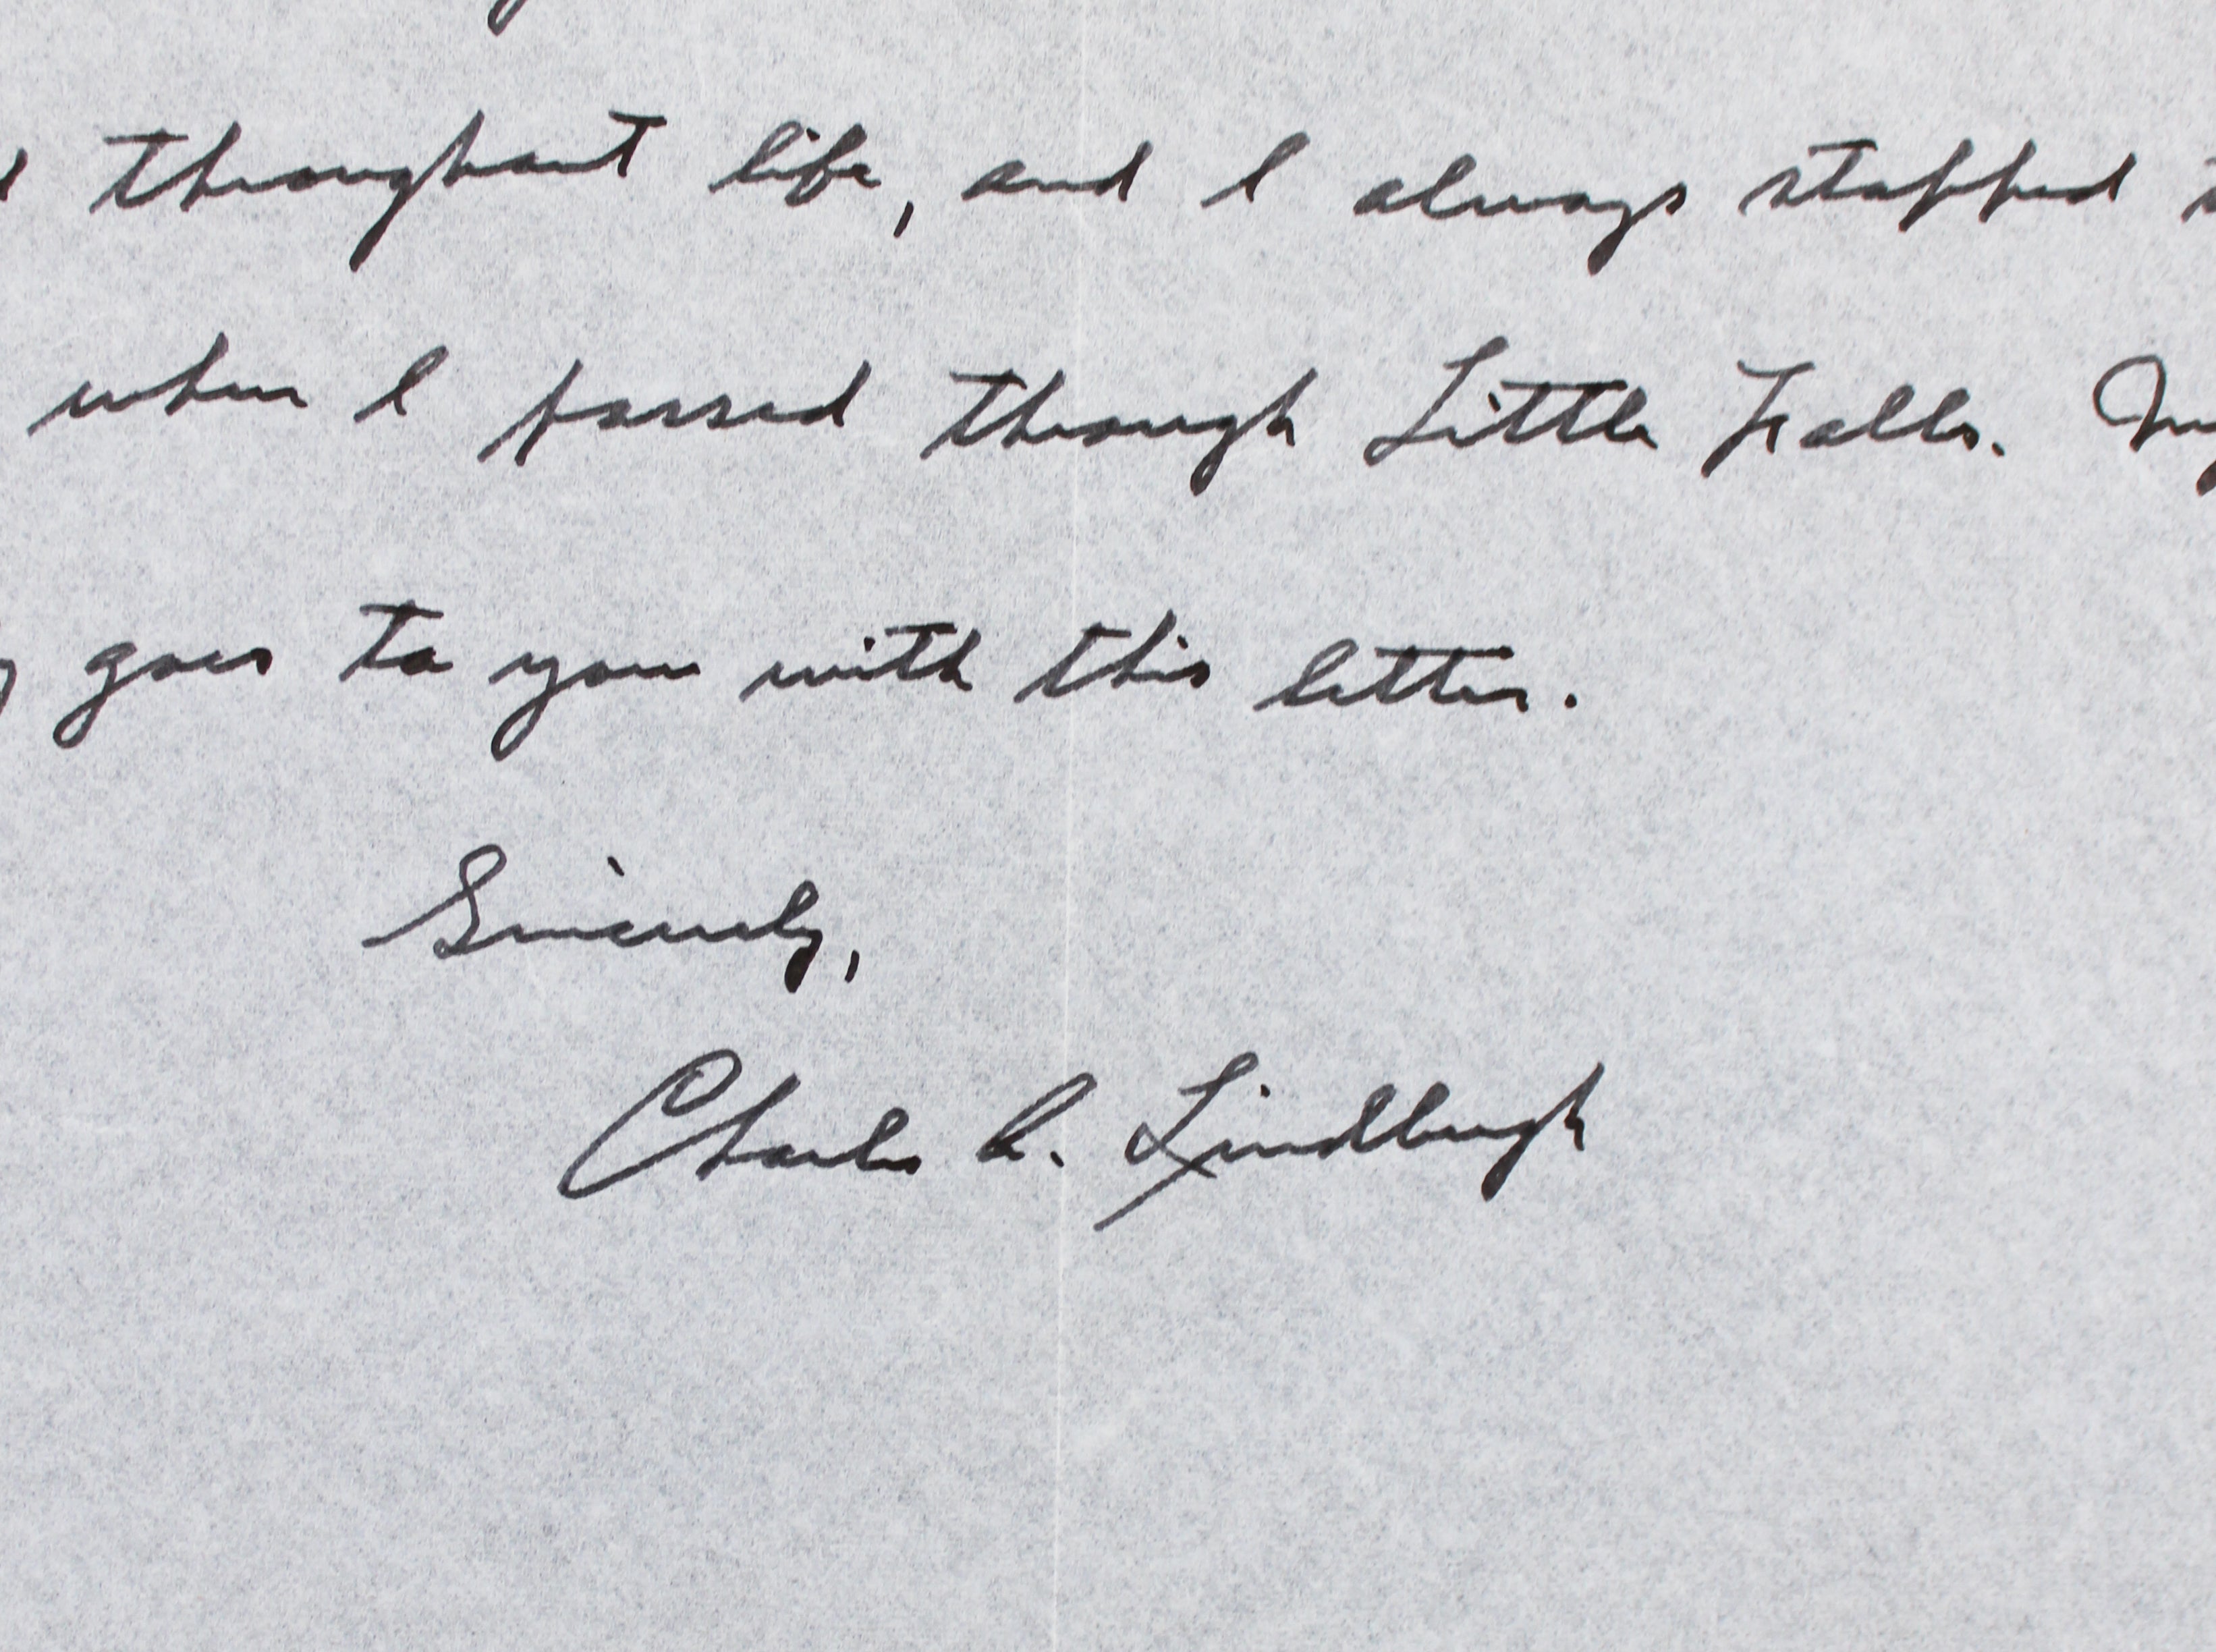 throughout life, and I always stopped
when I passed through Little Falls. My
goes to you with this letter.
Sincerely,
Charles A. Lindbergh